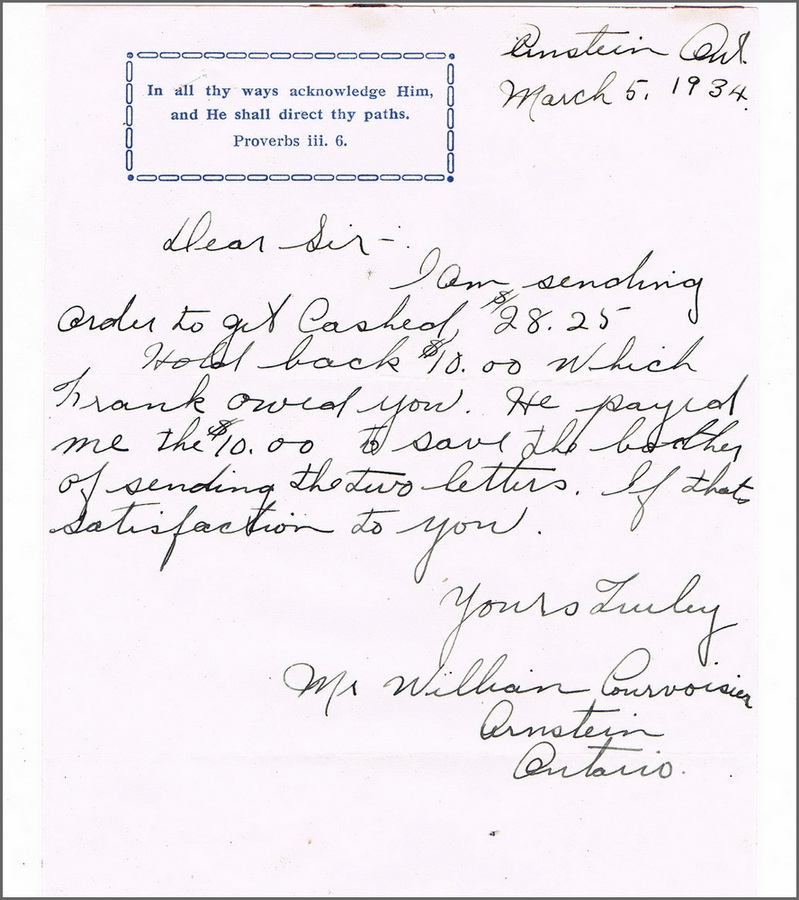 In all thy ways acknowledge Him,
and He shall direct thy paths.
Proverbs iii. 6.
Arnstein Ont.
March 5. 1934.
Dear Sir -.
I am sending
order to get Cashed, $28.25
Hold back $10.00 which
Frank owed you. He payed
me the $10.00 to save the bother
of sending the two letters. If thats
satisfaction to you.
Yours Truley
Mr William Courvoisier
Arnstein
Ontario.